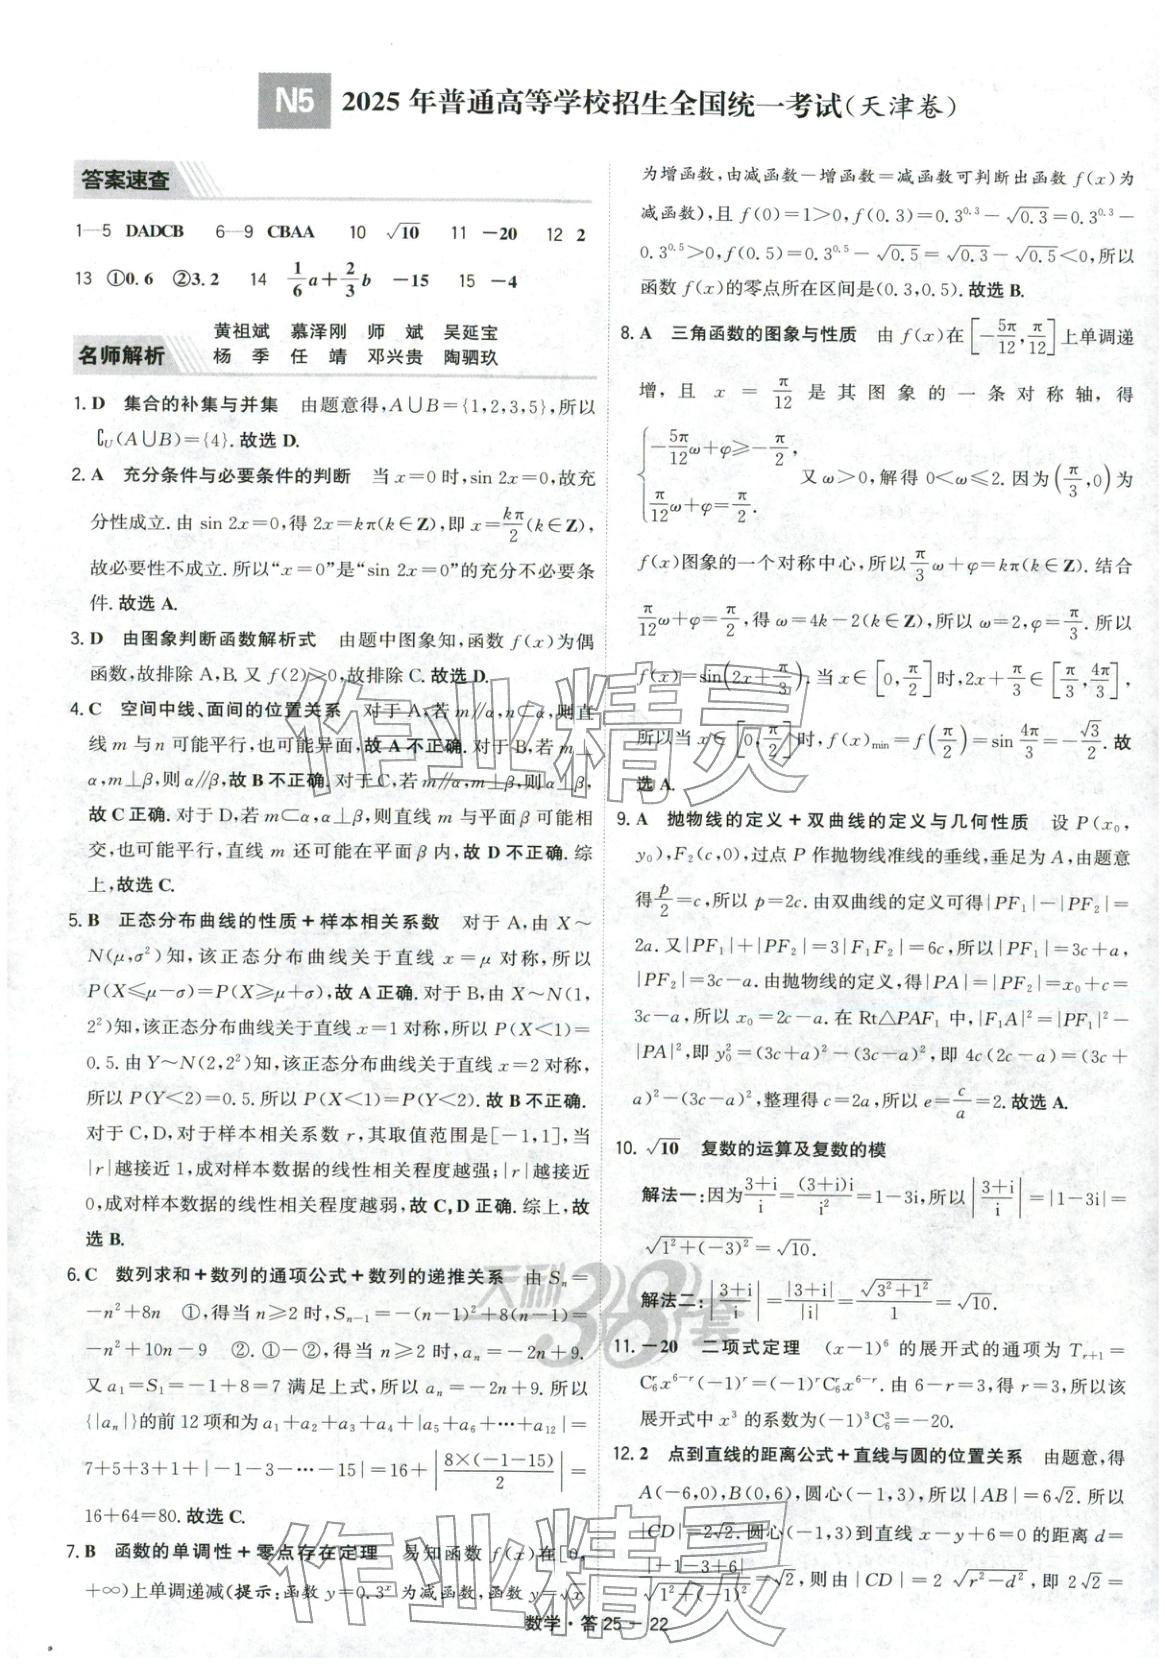 N5 2025年普通高等学校招生全国统一考试(天津卷)
答案速查
1—5 DADCB 6—9 CBAA 10 √10 11 −20 12 2
13 ①0.6 ②3.2 14 1/6a+2/3b −15 15 −4
黄祖斌 慕泽刚 师 斌 吴延宝
名师解析 杨 季 任 靖 邓兴贵 陶驷玖
1. D 集合的补集与并集 由题意得,A∪B={1,2,3,5},所以
∁U(A∪B)={4}.故选D.
2. A 充分条件与必要条件的判断 当x=0时,sin 2x=0,故充
分性成立.由sin 2x=0,得2x=kπ(k∈Z),即x=kπ/2(k∈Z),
故必要性不成立.所以“x=0”是“sin 2x=0”的充分不必要条
件.故选A.
3. D 由图象判断函数解析式 由题中图象知,函数f(x)为偶
函数,故排除A,B.又f(2)>0,故排除C.故选D.
4. C 空间中线、面间的位置关系 对于A,若m∥α,n⊂α,则直
线m与n可能平行,也可能异面,故A不正确.对于B,若m⊥
α,m⊥β,则α∥β,故B不正确.对于C,若m∥α,m⊥β,则α⊥β,
故C正确.对于D,若m⊂α,α⊥β,则直线m与平面β可能相
交,也可能平行,直线m还可能在平面β内,故D不正确.综
上,故选C.
5. B 正态分布曲线的性质+样本相关系数 对于A,由X~
N(μ,σ²)知,该正态分布曲线关于直线x=μ对称,所以
P(X≤μ−σ)=P(X≥μ+σ),故A正确.对于B,由X~N(1,
2²)知,该正态分布曲线关于直线x=1对称,所以P(X<1)=
0.5.由Y~N(2,2²)知,该正态分布曲线关于直线x=2对称,
所以P(Y<2)=0.5.所以P(X<1)=P(Y<2).故B不正确.
对于C,D,对于样本相关系数r,其取值范围是[−1,1],当
|r|越接近1,成对样本数据的线性相关程度越强;|r|越接近
0,成对样本数据的线性相关程度越弱,故C,D正确.综上,故
选B.
6. C 数列求和+数列的通项公式+数列的递推关系 由Sₙ=
−n²+8n ①,得当n≥2时,Sₙ₋₁=−(n−1)²+8(n−1)=
−n²+10n−9 ②.①−②,得当n≥2时,aₙ=−2n+9.
又a₁=S₁=−1+8=7满足上式,所以aₙ=−2n+9.所以
{|aₙ|}的前12项和为a₁+a₂+a₃+a₄+|a₅+a₆+⋯+a₁₂|=
7+5+3+1+|−1−3−⋯−15|=16+|8×(−1−15)/2|=
16+64=80.故选C.
7. B 函数的单调性+零点存在定理 易知函数f(x)在[0,
+∞)上单调递减(提示:函数y=0.3ˣ为减函数,函数y=√x
为增函数,由减函数−增函数=减函数可判断出函数f(x)为
减函数),且f(0)=1>0,f(0.3)=0.3^0.3−√0.3=0.3^0.3−
0.3^0.5>0,f(0.5)=0.3^0.5−√0.5=√0.3−√0.5<0,所以
函数f(x)的零点所在区间是(0.3,0.5).故选B.
8. A 三角函数的图象与性质 由f(x)在[−5π/12,π/12]上单调递
增,且x=π/12是其图象的一条对称轴,得
{−5π/12ω+φ≥−π/2,
π/12ω+φ=π/2. 又ω>0,解得0<ω≤2.因为(π/3,0)为
f(x)图象的一个对称中心,所以π/3ω+φ=kπ(k∈Z).结合
π/12ω+φ=π/2,得ω=4k−2(k∈Z),所以ω=2,φ=π/3.所以
f(x)=sin(2x+π/3).当x∈[0,π/2]时,2x+π/3∈[π/3,4π/3],
所以当x∈[0,π/2]时,f(x)min=f(π/2)=sin 4π/3=−√3/2.故
选A.
9. A 抛物线的定义+双曲线的定义与几何性质 设P(x₀,
y₀),F₂(c,0),过点P作抛物线准线的垂线,垂足为A,由题意
得p/2=c,所以p=2c.由双曲线的定义可得|PF₁|−|PF₂|=
2a.又|PF₁|+|PF₂|=3|F₁F₂|=6c,所以|PF₁|=3c+a,
|PF₂|=3c−a.由抛物线的定义,得|PA|=|PF₂|=x₀+c=
3c−a,所以x₀=2c−a.在Rt△PAF₁中,|F₁A|²=|PF₁|²−
|PA|²,即y₀²=(3c+a)²−(3c−a)²,即4c(2c−a)=(3c+
a)²−(3c−a)²,整理得c=2a,所以e=c/a=2.故选A.
10. √10 复数的运算及复数的模
解法一:因为(3+i)/i=(3+i)i/i²=1−3i,所以|(3+i)/i|=|1−3i|=
√(1²+(−3)²)=√10.
解法二:|(3+i)/i|=|3+i|/|i|=√(3²+1²)/1=√10.
11. −20 二项式定理 (x−1)⁶的展开式的通项为Tᵣ₊₁=
C₆ʳx⁶⁻ʳ(−1)ʳ=(−1)ʳC₆ʳx⁶⁻ʳ.由6−r=3,得r=3,所以该
展开式中x³的系数为(−1)³C₆³=−20.
12. 2 点到直线的距离公式+直线与圆的位置关系 由题意,得
A(−6,0),B(0,6),圆心(−1,3),所以|AB|=6√2.所以
|CD|=2√2.圆心(−1,3)到直线x−y+6=0的距离d=
|−1−3+6|/√(1²+(−1)²)=√2,则由|CD|=2√(r²−d²),即2√2=
数学·答25—22
作业精灵
天利38套
作业精灵